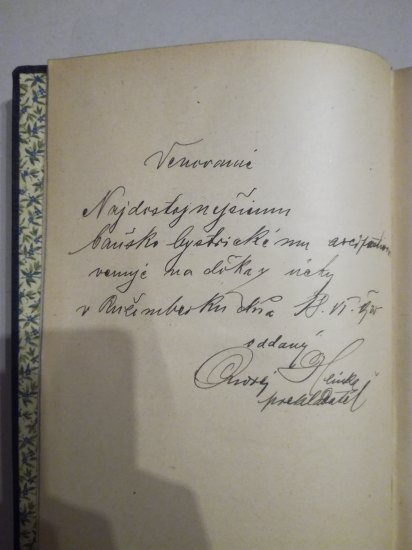 Venovanie
Najdostojnejšiemu
báňsko bystrickému
venuje na dôkaz úcty
v Ružomberku dňa 18. VI.
oddaný
Andrej Hlinka
prekladateľ